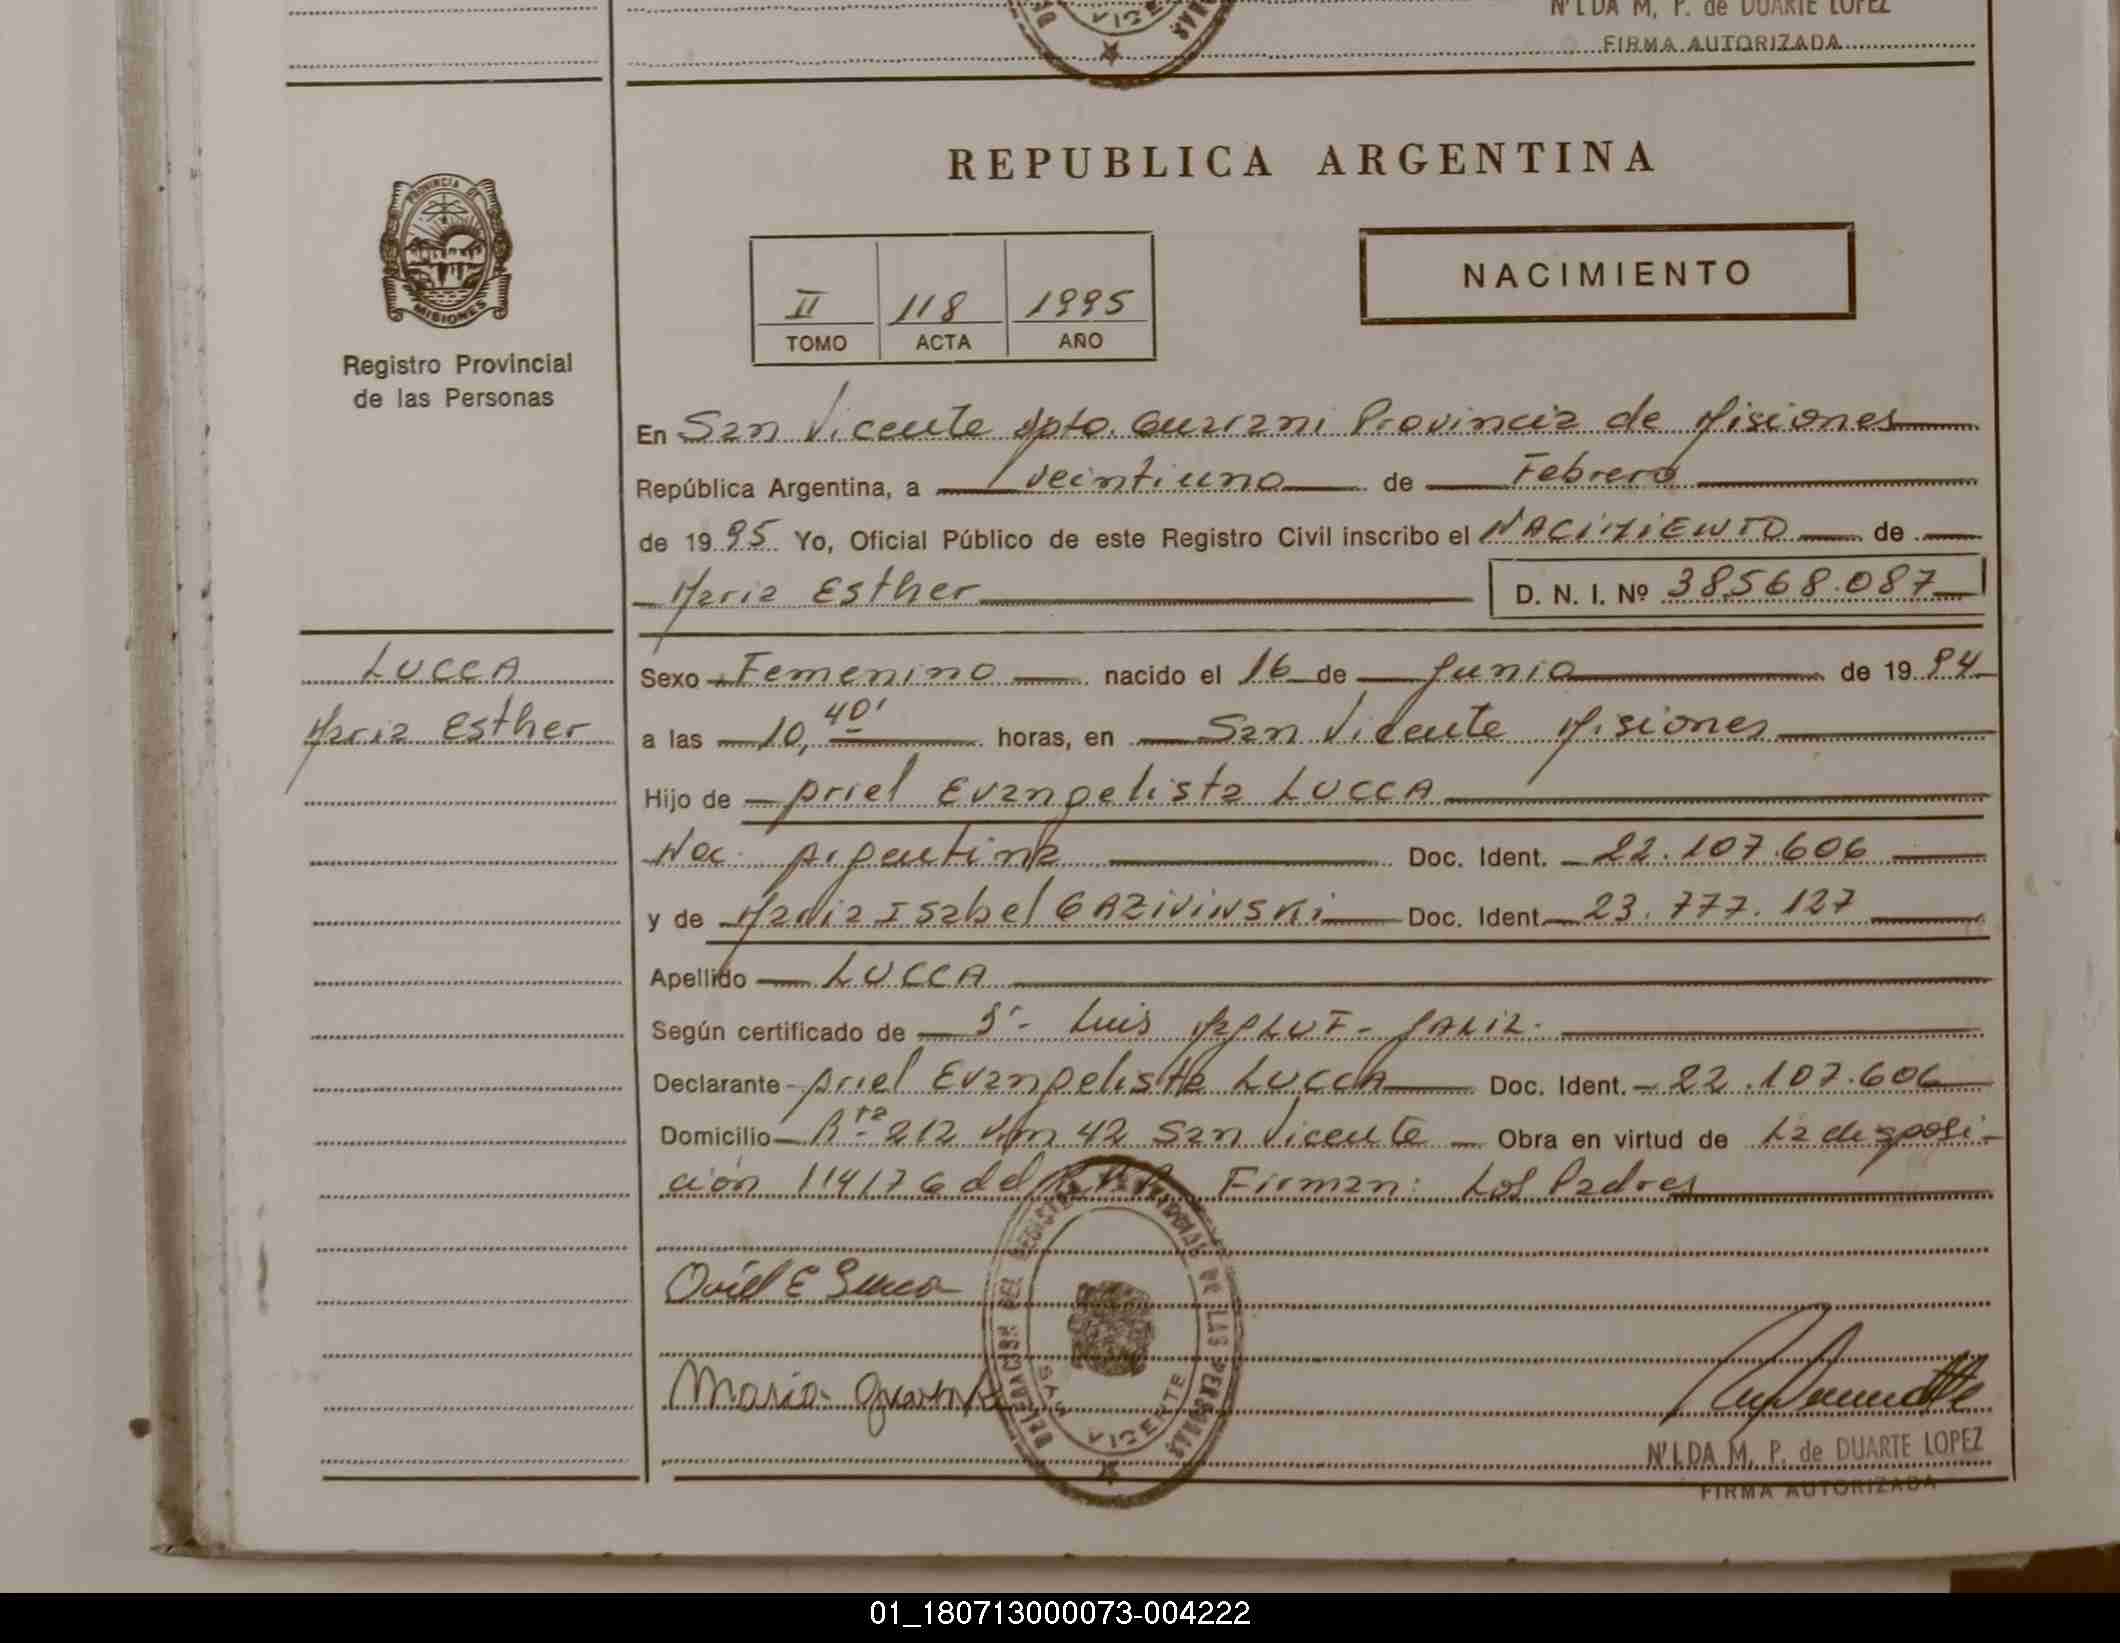 N'LDA M. P. de DUARTE LOPEZ
FIRMA AUTORIZADA
PROVINCIA DE
MISIONES
Registro Provincial
de las Personas
REPUBLICA ARGENTINA
II 118 1995
TOMO ACTA AÑO
NACIMIENTO
En San Vicente Dpto. Guarani Provincia de Misiones
República Argentina, a veintiuno de Febrero
de 1995 Yo, Oficial Público de este Registro Civil inscribo el NACIMIENTO de
Maria Esther D. N. I. Nº 38.568.087
LUCCA
Maria Esther
Sexo Femenino nacido el 16 de Junio de 1994
a las 10,40' horas, en San Vicente Misiones
Hijo de Ariel Evangelista LUCCA
Nac. Argentina Doc. Ident. 22.107.606
y de Maria Isabel GAZIVINSKI Doc. Ident. 23.777.127
Apellido LUCCA
Según certificado de Luis
Declarante Ariel Evangelista LUCCA Doc. Ident. 22.107.606
Domicilio Rta 212 Km 42 San Vicente Obra en virtud de La disposi-
ción 114/76 del Firman: Los Padres
DELEGACION DEL REGISTRO DE LAS PERSONAS
SAN VICENTE
Maria
N'LDA M. P. de DUARTE LOPEZ
FIRMA AUTORIZADA
01_180713000073-004222